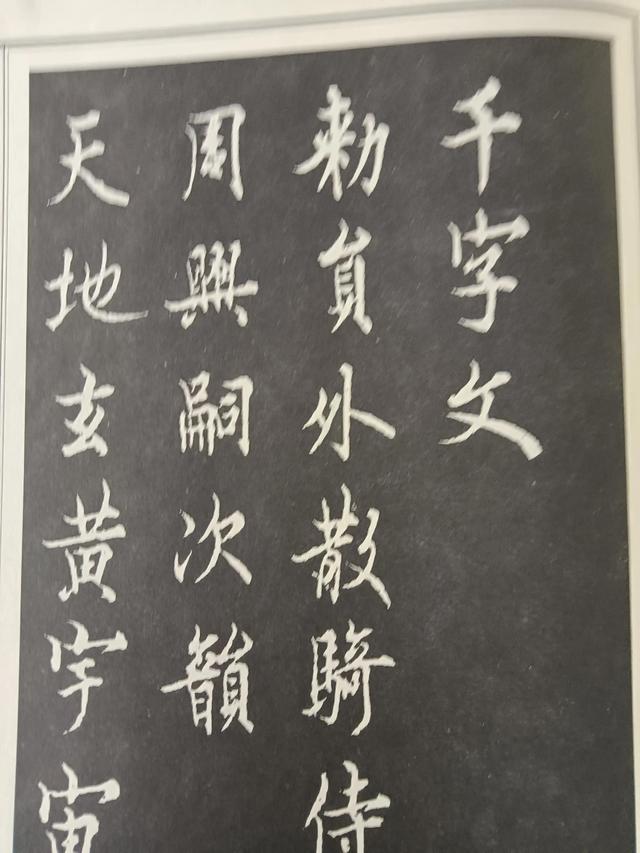 千字文
勑貟外散騎侍
周興嗣次韻
天地玄黃宇宙